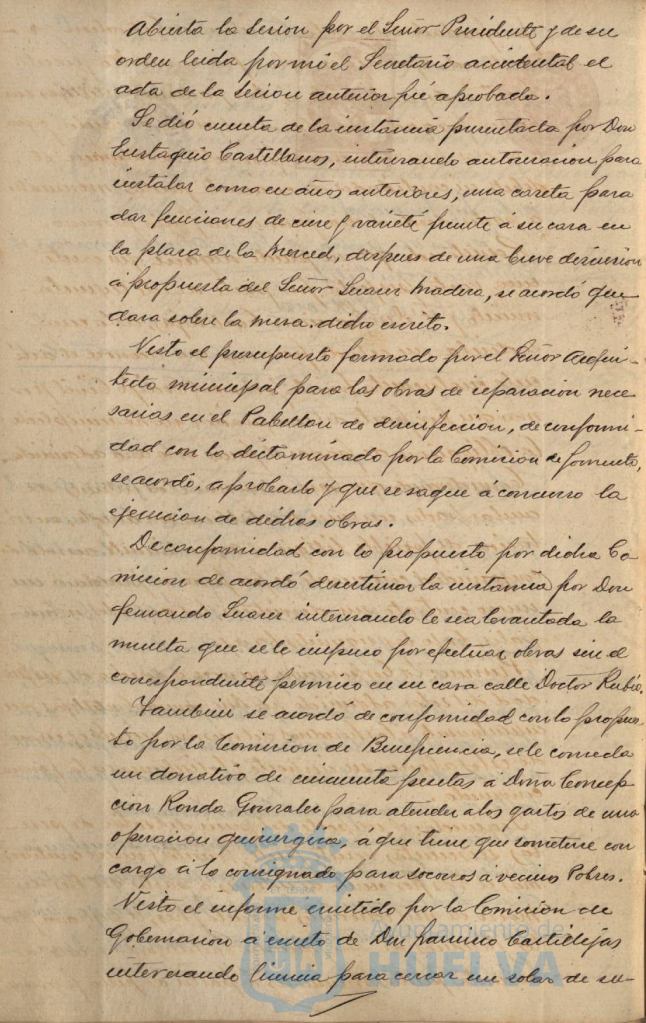 Abierta la sesion por el Señor Presidente y de su
orden leida por mi el Secretario accidental el
acta de la sesion anterior fué aprobada.
Se dió cuenta de la instancia presentada por Don
Eustaquio Castellanos, interesando autorizacion para
instalar como en años anteriores, una caseta para
dar funciones de cine y varieté frente á su casa en
la plaza de la Merced, despues de una breve discusion
á propuesta del Señor Suarez Madera, se acordó que
dara sobre la mesa dicho escrito.
Visto el presupuesto formado por el Señor Arqui-
tecto municipal para las obras de reparacion nece
sarias en el Pabellon de desinfeccion, de conformi-
dad con lo dictaminado por la Comision de fomento,
se acordó, aprobarlo y que se saque á concurso la
ejecucion de dichas obras.
De conformidad con lo propuesto por dicha Co
mision se acordó desestimar la instancia por Don
fernando Suarez interesando le sea levantada la
multa que se le impuso por efectuar obras sin el
correspondiente permiso en su casa calle Doctor Rubio.
Tambien se acordó de conformidad con lo propues
to por la Comision de Beneficencia, se le conceda
un donativo de cincuenta pesetas á Doña Concep
cion Ronda Gonzalez para atender a los gastos de una
operacion quirurgica, á que tiene que someterse con
cargo á lo consignado para socorros á vecinos Pobres.
Visto el informe emitido por la Comision de
Gobernacion á escrito de Don francisco Castillejas
interesando licencia para cerrar un solar de su-
Ayuntamiento de
HUELVA